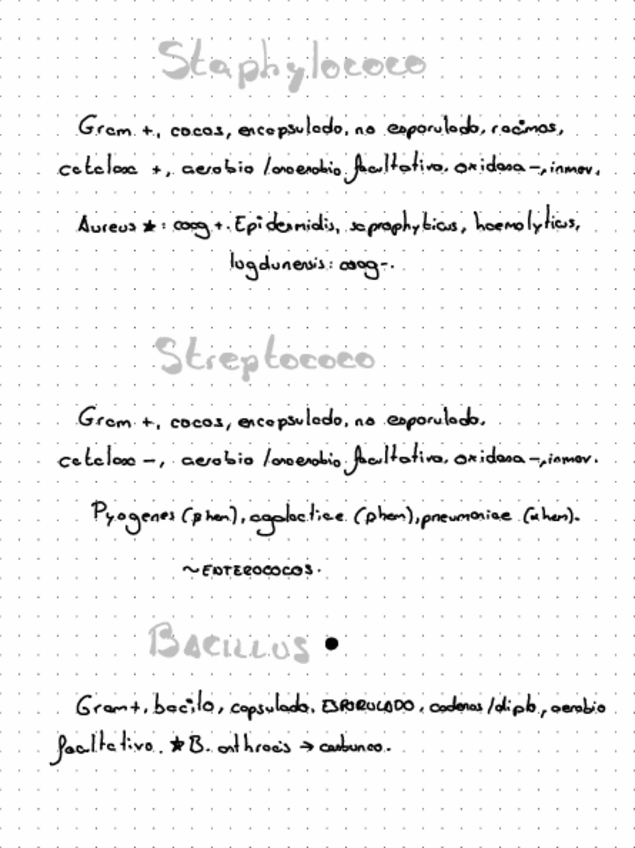 Staphylococo
Gram +, cocos, encapsulado, no esporulado, racimos,
catalasa +, aerobio /anaerobio facultativo. oxidasa -, inmov.
Aureus ★: coag +. Epidermidis, saprophyticus, haemolyticus,
lugdunensis: coag-.
Streptococo
Gram +, cocos, encapsulado, no esporulado.
catalasa -, aerobio /anaerobio facultativo. oxidasa -, inmov.
Pyogenes (βhem), agalactiae (βhem), pneumoniae (αhem).
~ENTEROCOCOS.
BACILLUS ●
Gram+, bacilo, capsulado, ESPORULADO, cadenas/diplo, aerobio
facultativo. ★B. anthracis → carbunco.